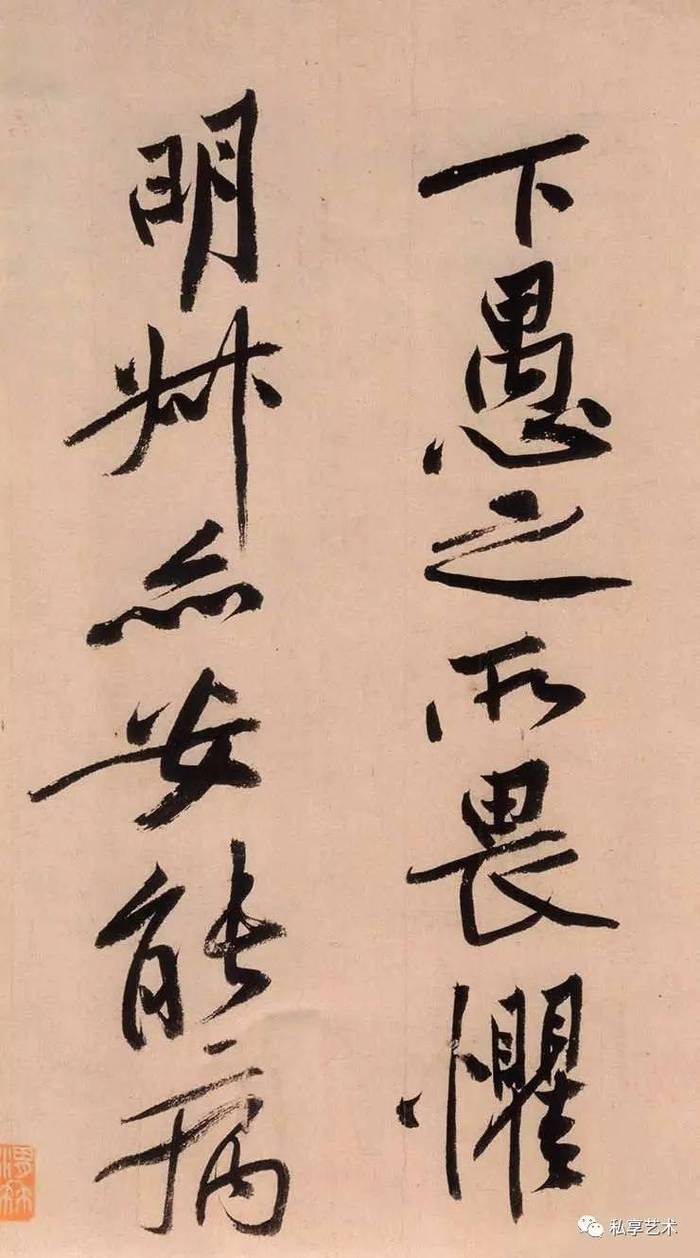 下愚之所畏懼
明叔亦安能病
私享艺术